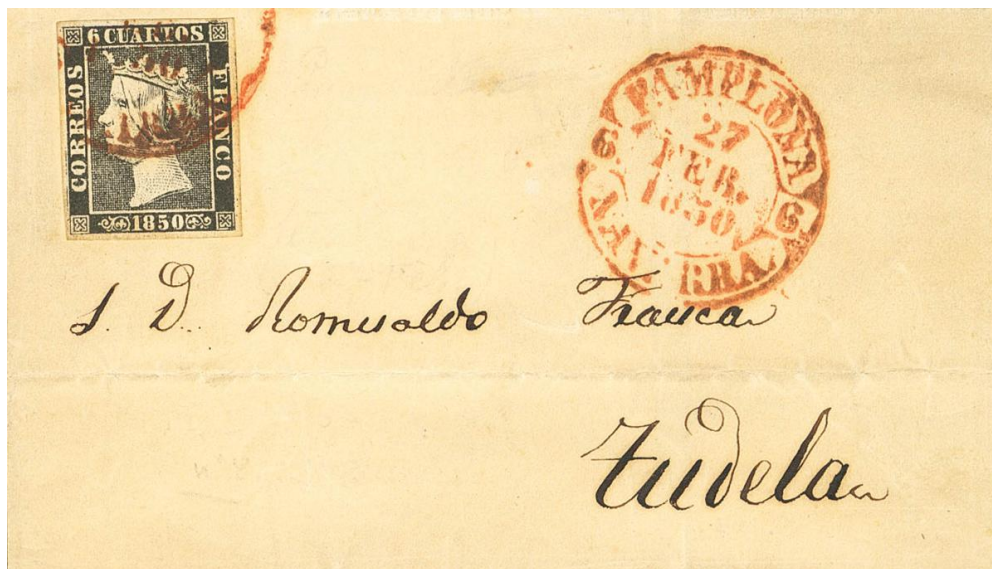 6 CUARTOS
CORREOS
FRANCO
1850
PAMPLONA
27
FEB.
1850
NAVARRA
S. D. Romualdo Franca
Tudela